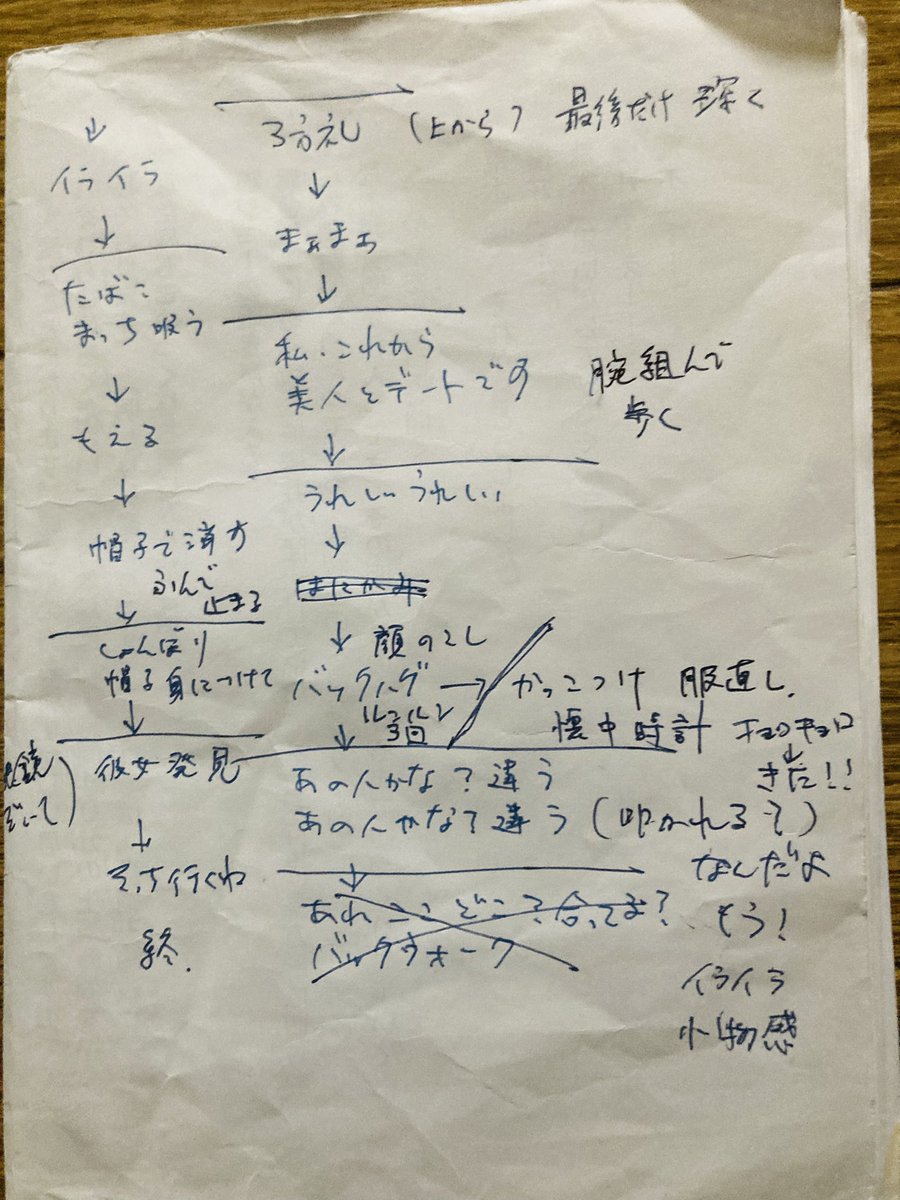 3方礼 (上から) 最後だけ 深く
↓
まぁまぁ
↓
私、これから
美人とデートです
腕組んで
歩く
↓
うれしいうれしい
↓
はにかみ
↓ 顔のこし
バックハグ → かっこつけ 服直し、
ルンルン
3回
懐中時計 キョロキョロ
↓
きた!!
↓
あの人かな?違う
あの人かな?違う (叩かれるて)
なんだよ
もう!
イライラ
小物感
↓
あれここどこ?合ってる?
バックウォーク
↓
イライラ
↓
たばこ
まっち吸う
↓
もえる
↓
帽子で消す
ふんで
止まる
↓
しょんぼり
帽子身につけて
↓
彼女発見
鏡
↓
そっち行くね
終.